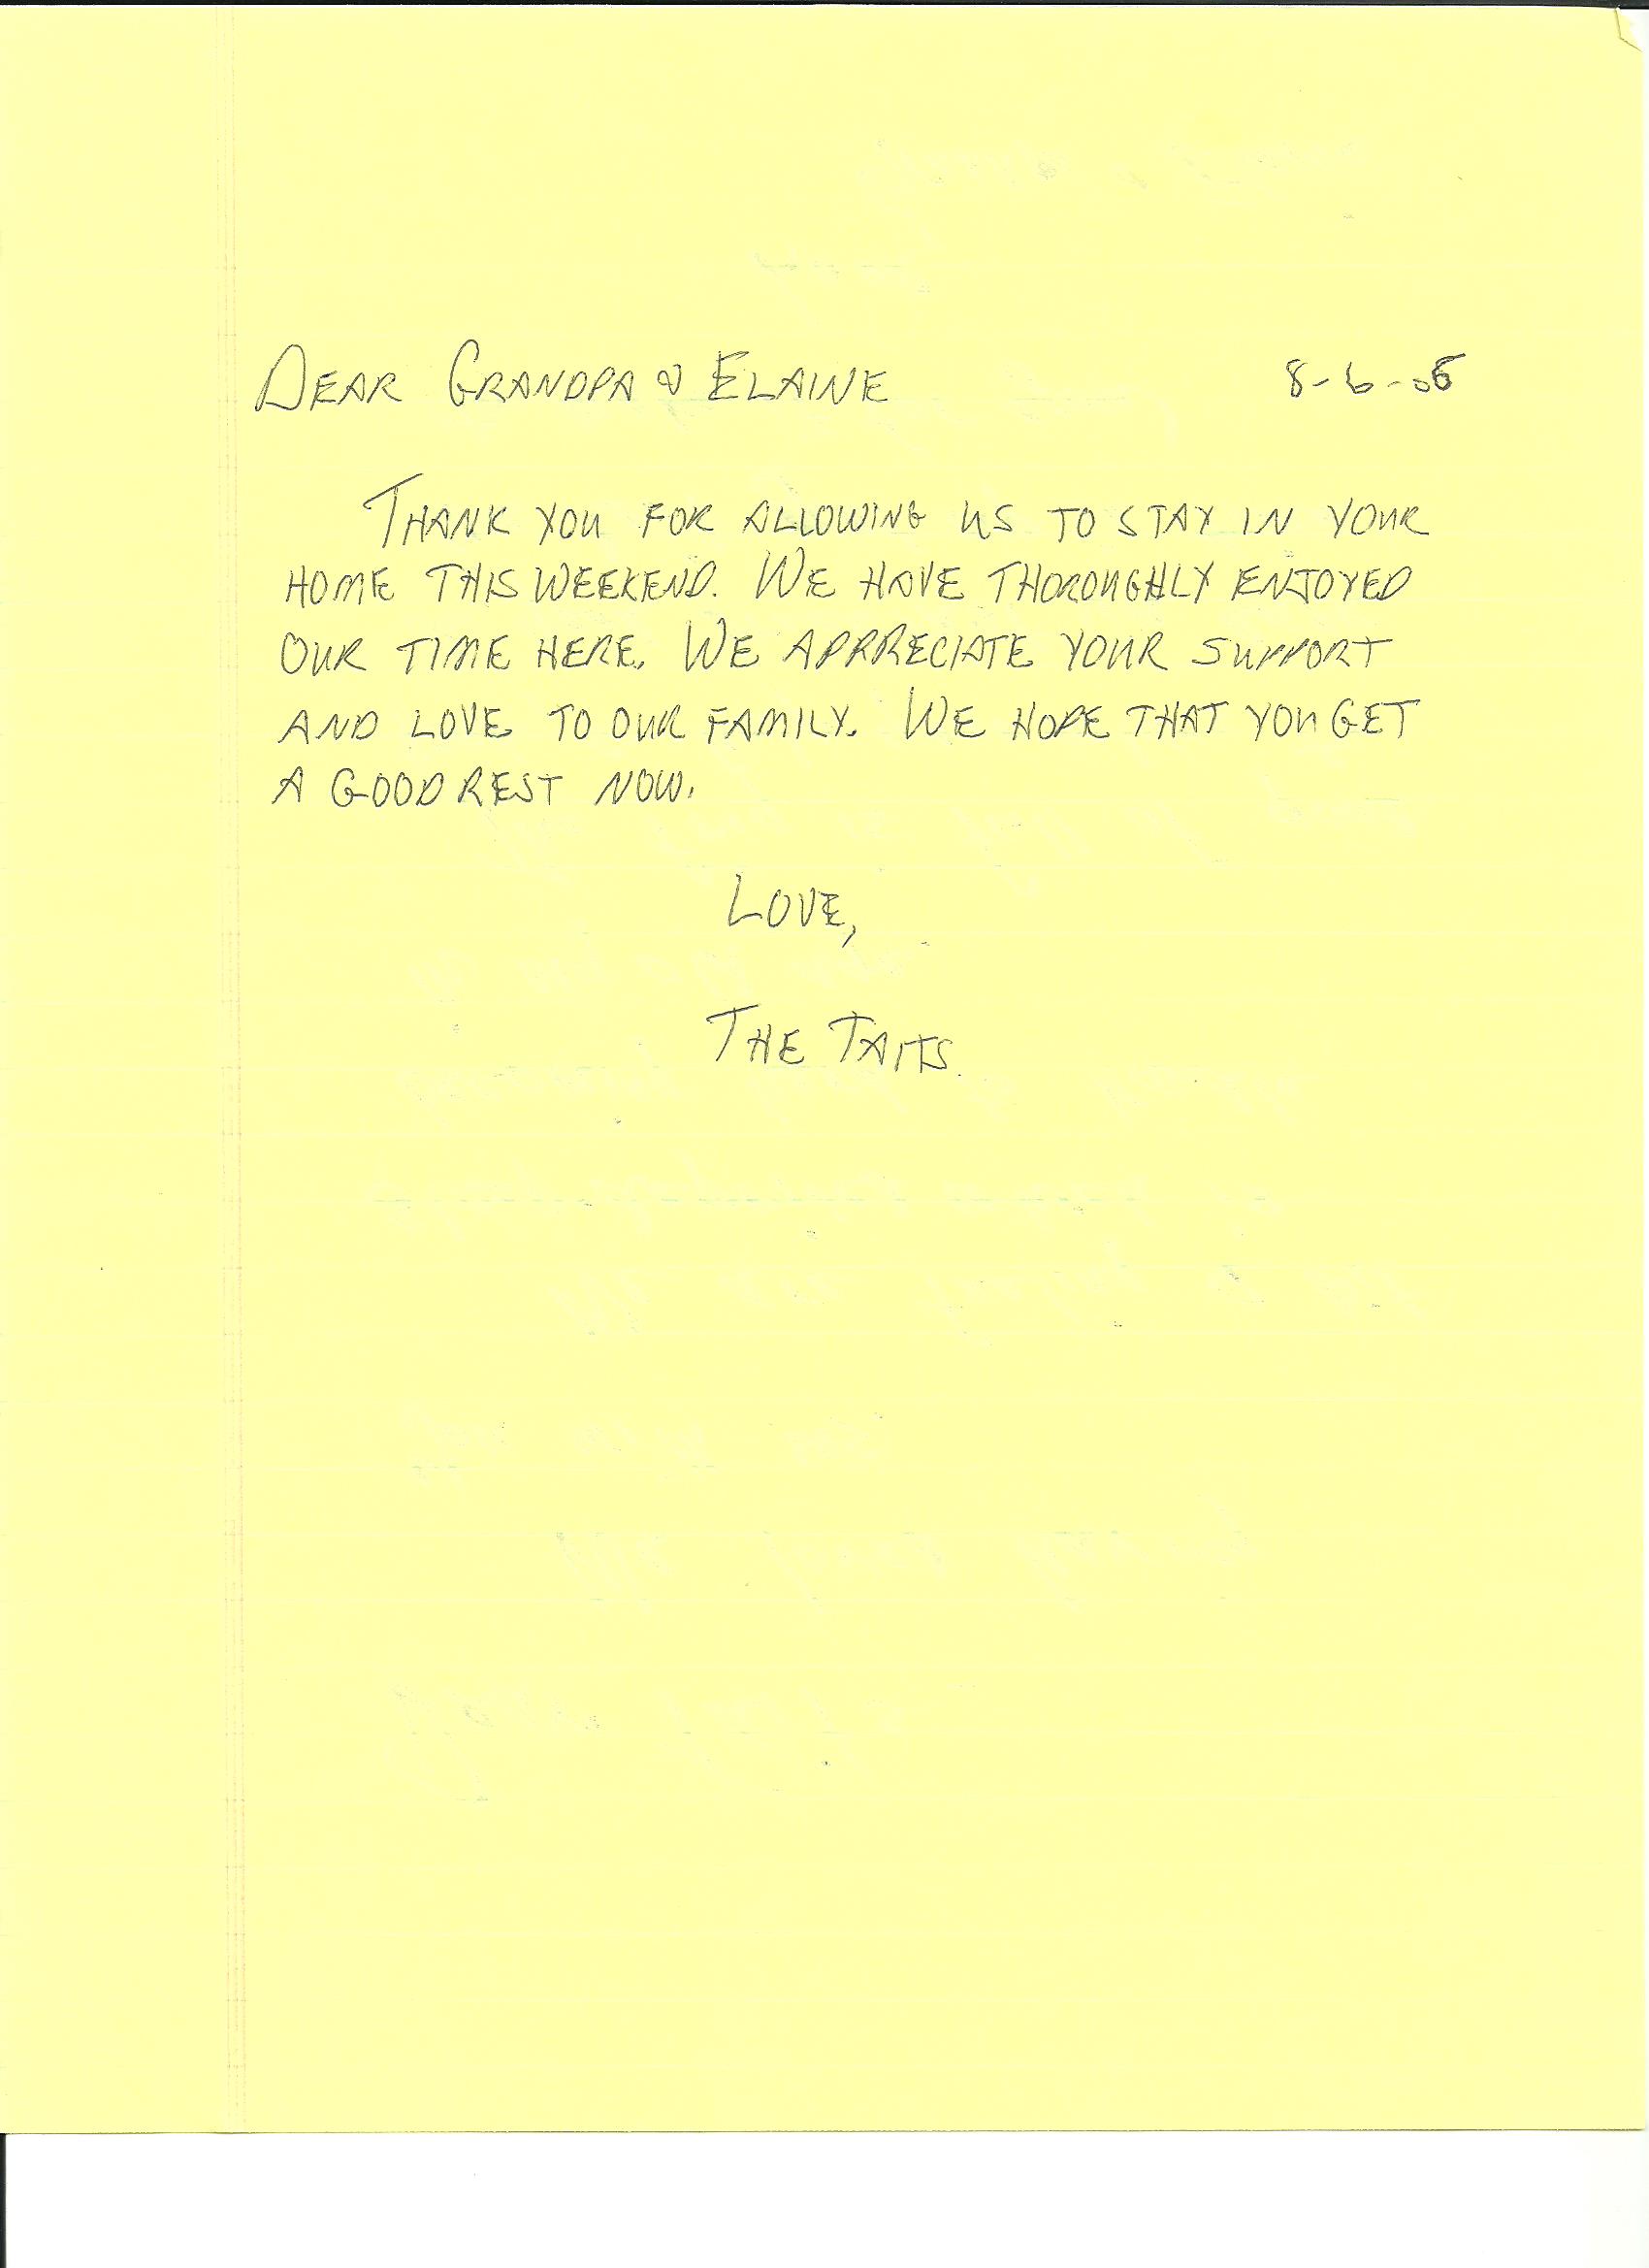 DEAR GRANDPA & ELAINE 8-6-06
THANK YOU FOR ALLOWING US TO STAY IN YOUR
HOME THIS WEEKEND. WE HAVE THOROUGHLY ENJOYED
OUR TIME HERE. WE APPRECIATE YOUR SUPPORT
AND LOVE TO OUR FAMILY. WE HOPE THAT YOU GET
A GOOD REST NOW.
LOVE,
THE TAITS.